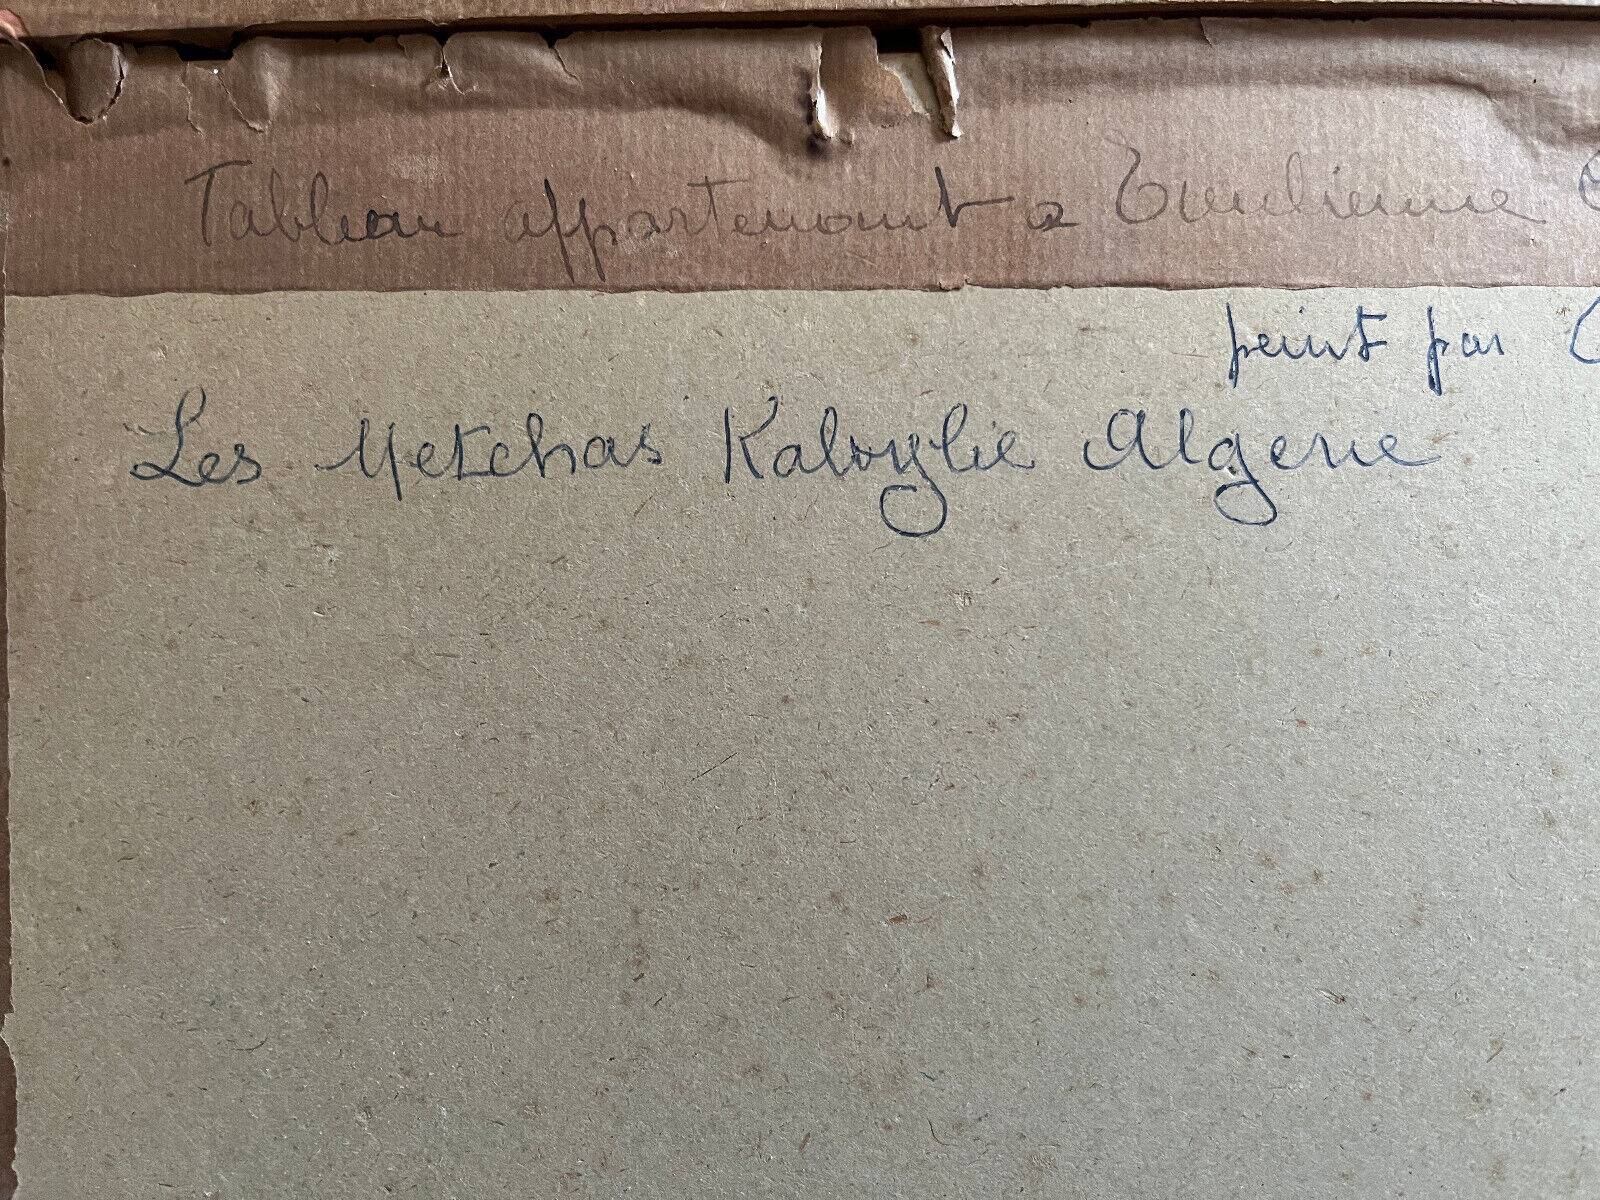 Tableau appartenant a
peint par
Les Metchas Kabylie Algerie